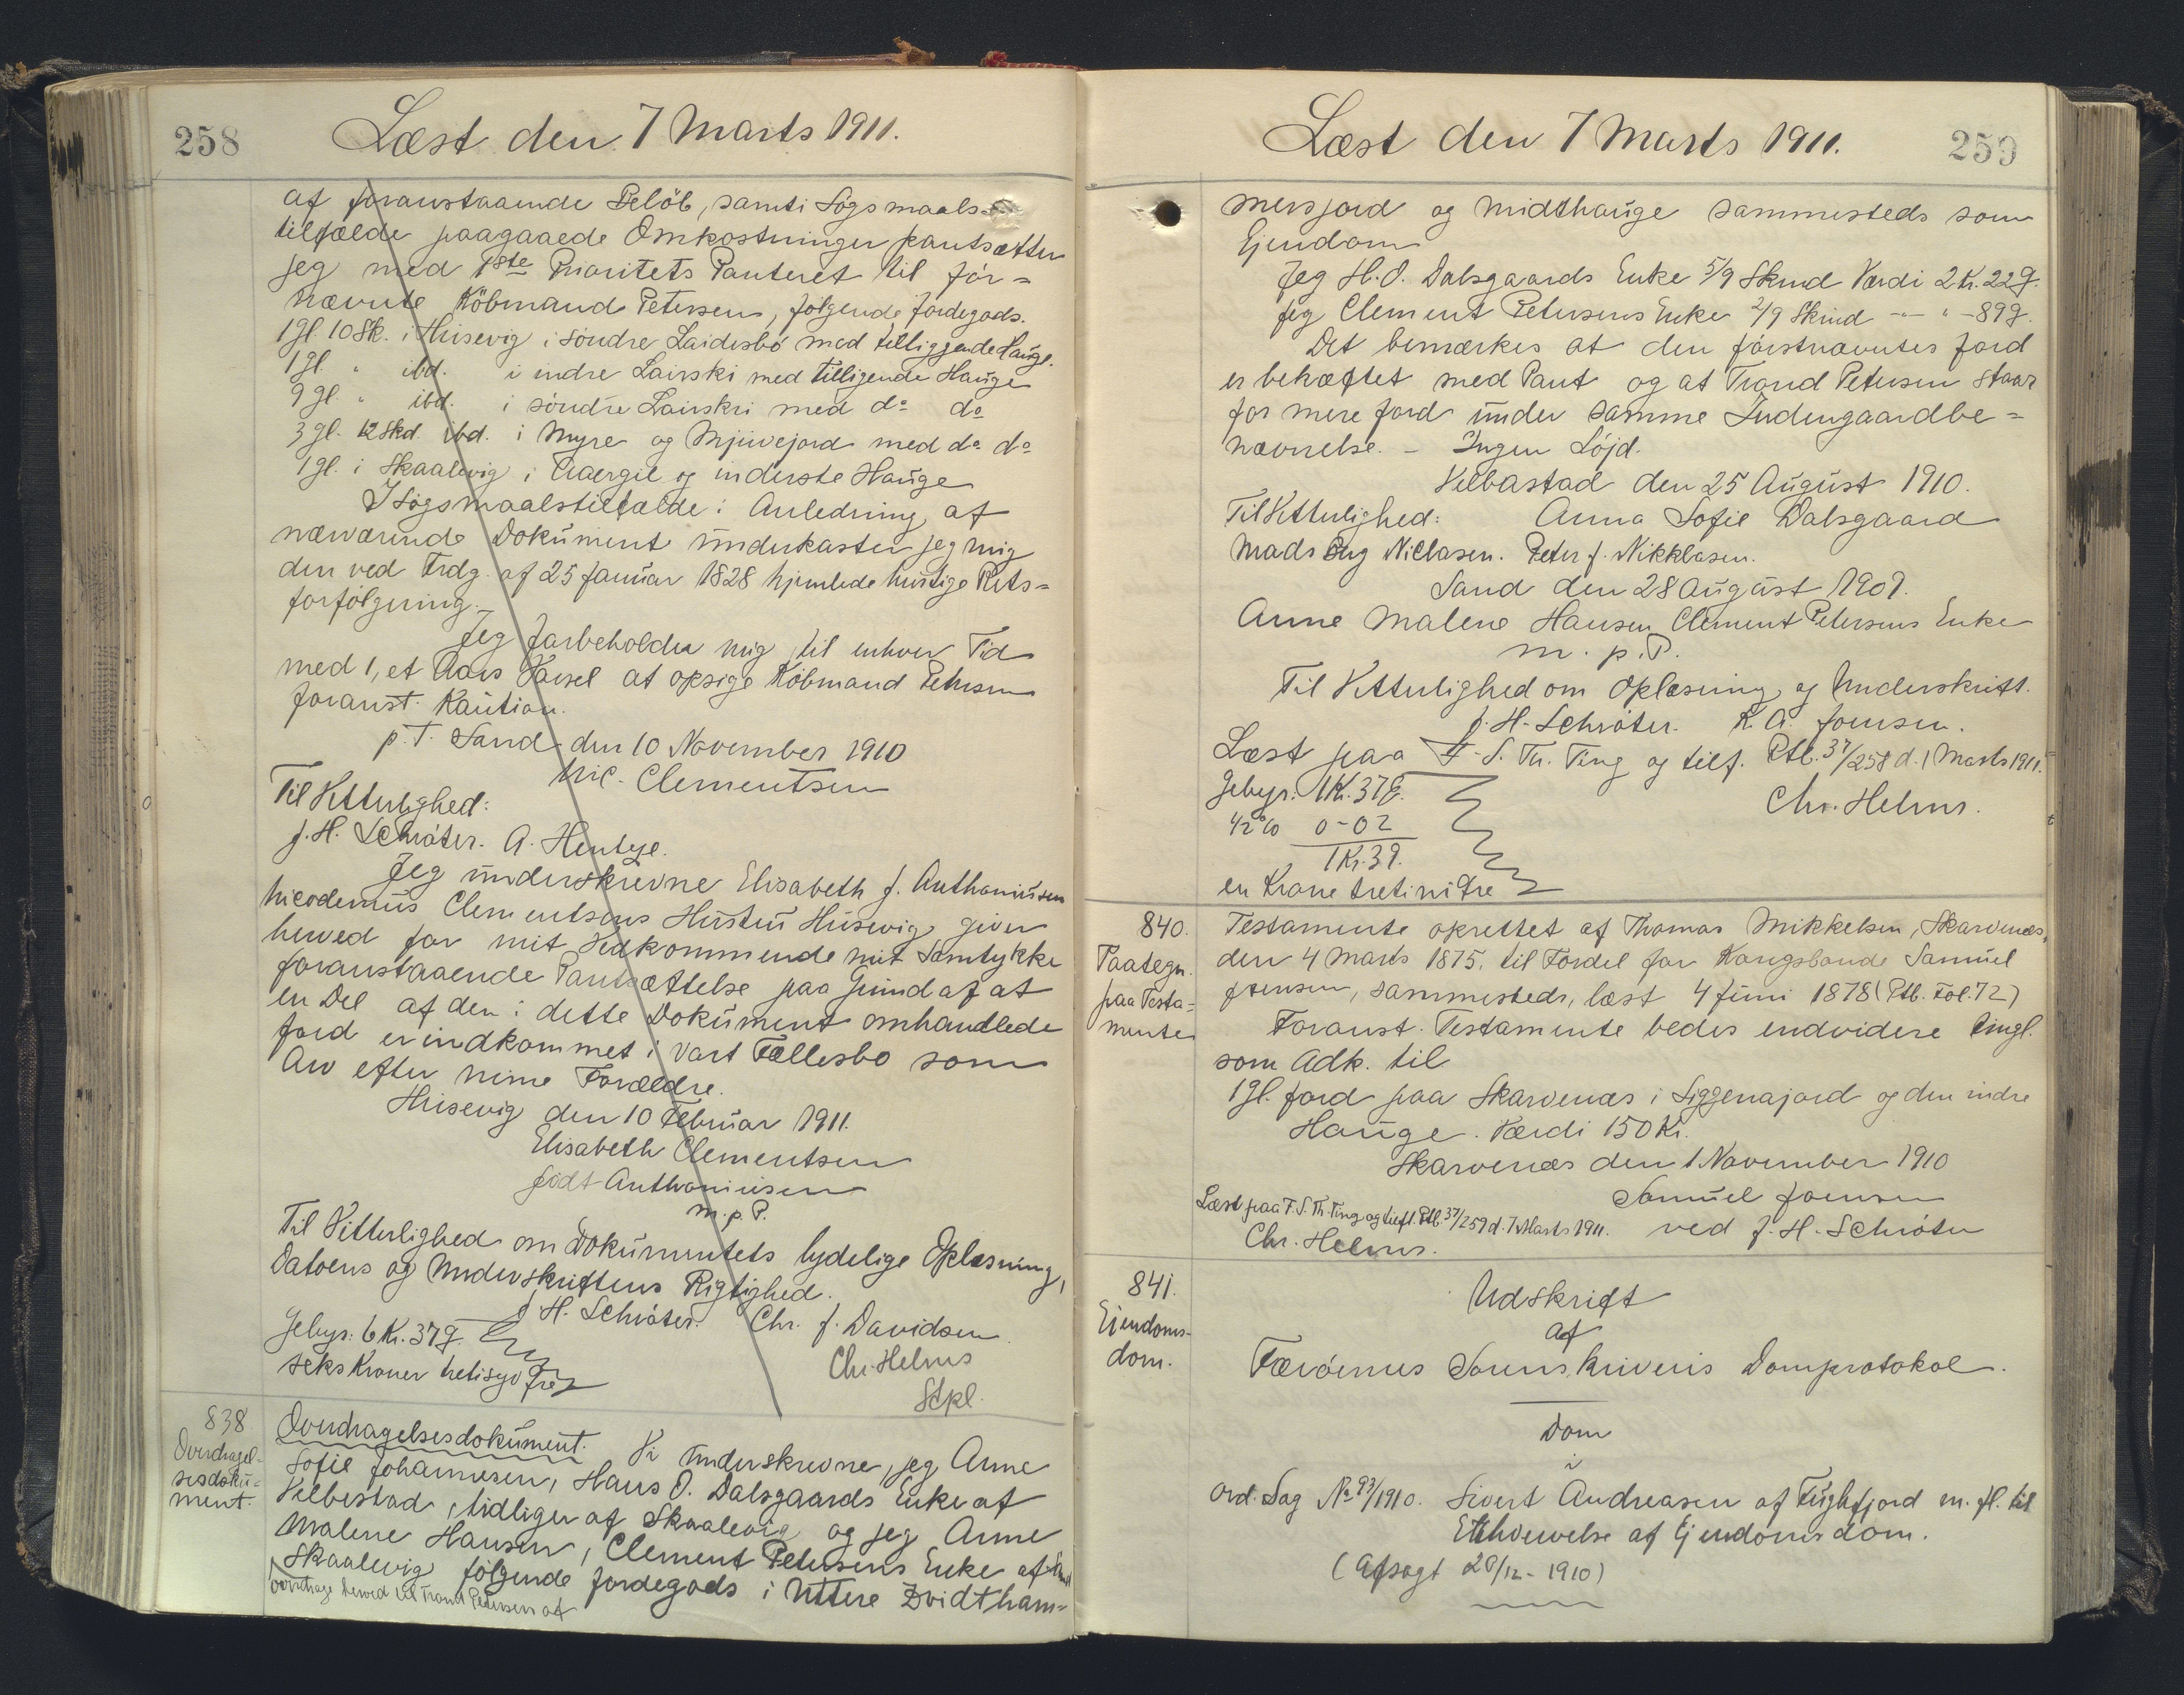 258
Læst den 7 Marts 1911.
af foranstaaende Beløb, samt i Søgsmaals-
tilfælde paagaaede Omkostninger pantsætter
jeg med 1ste Prioritets Panteret til før=
nævnte Köbmand Petersen, følgende Jordegods.
1 gl. 10 Sk. i Húsevig i söndre Laidesbö med tilliggende Haúge.
1 gl. " ibd. i indre Lairski med tilligende Haúge
9 gl. " ibd. i söndre Lairskri med do do
3 gl. 12 Skd. ibd. i Myre og Mjivejord med do do
1 gl. i Skaalevig i Traergil og inderste Haúge
I Søgsmaalstilfælde i Anledning af
nærværende Dokúment únderkaster jeg mig
den ved Frdg. af 25 Janúar 1828 hjemlede hurtige Rets=
forfölgning.
Jeg forbeholder mig til enhver Tid
med 1, et Aars Varsel at opsige Köbmand Petersen
foranst. Kaútion.
p. T. Sand den 10 November 1910
Nic. Clementsen
Til Vitterlighed:
J. H. Schröter. A. Hentze.
Jeg únderskrevne Elisabeth f. Anthoniúsen
Nicodemús Clementsens Hústrú Húsevig giver
herved for mit Vedkommende mit Samtykke
foranstaaende Pantsættelse paa Grúnd af at
en Del af den i dette Dokúment omhandlede
Jord er indkommet i vort Fællesbo som
Arv efter mine Forældre.
Húsevig den 10 Febrúar 1911.
Elisabeth Clementsen
født Anthoniúsen
m. p. P.
Til Vitterlighed om Dokúmentets lydelige Oplæsning,
Datoens og Underskriftens Rigtighed.
J. H. Schröter. Chr. J. Davidsen
Gebyr: 6 Kr. 37 Ø.
seks Kroner tretisyv Øre
Chr. Helms
Stkl.
838
Overdragel-
sesdokú=
ment.
Overdragelsesdokúment. Vi únderskrevne, jeg Anne
Sofie Johannesen, Hans O. Dalsgaards Enke af
Velbestad, tidligere af Skaalevig og jeg Anne
Malene Hansen, Clement Petersens Enke af Sand
overdrage herved til Trond Petersen af
Skaalevig følgende Jordegods i Uttere Zvidtham=
Læst den 7 Marts 1911.
259
mersjord og Midthaúge sammesteds som
Ejendom
Jeg H. O. Dalsgaards Enke 5/9 Skind Værdi 2 Kr. 22 Ø.
Jeg Clement Petersens Enke 2/9 Skind -"- " - 89 Ø.
Det bemærkes at den förstnævntes Jord
er behæftet med Pant og at Trond Petersen staar
for mere Jord únder samme Indengaardbe=
nævnelse. - Ingen Löjd.
Velbastad den 25 Aúgúst 1910.
Til Vitterlighed: Anna Sofie Dalsgaard
Mads Niclasen. Peter J. Nikklasen.
Sand den 28 Aúgúst 1909.
Anne Malene Hansen Clement Petersens Enke
m. p. P.
Til Vitterlighed om Oplæsning og Underskrift.
J. H. Schröter. K. A. Joensen.
Læst paa F. S. Th. Ting og tilf. Ptb. 37/258 d. 7 Marts 1911.
Gebyr: 1 Kr. 37 Ø.
1/2 % 0 - 02
1 Kr. 39.
en Krone tretini Øre
Chr. Helms.
840.
Paategn.
paa Testa=
mente
Testamente oprettet af Thomas Mikkelsen, Skarvenæs,
den 4 Marts 1875. til Fordel for Kongsbonde Samúel
Joensen, sammesteds, læst 4 Júni 1878 (Ptb. Fol. 72)
Foranst. Testamente bedes endvidere tingl.
som Adk. til
1 gl. Jord paa Skarvenæs i Siggenajord og den indre
Haúge. Værdi 150 Kr.
Skarvenæs den 1 November 1910
Samúel Joensen
ved J. H. Schröter
Læst paa F. S. Th. Ting og tilft. Ptb. 37/259 d. 7 Marts 1911.
Chr. Helms.
841.
Ejendoms-
dom.
Udskrift
af
Færöernes Sorenskriveris Domprotokol.
Dom
i
Ord. Sag No 93/1910. Sivert Andreasen af Fúglefjord m. fl. til
Erhvervelse af Ejendomsdom.
(Afsagt 20/12 - 1910)